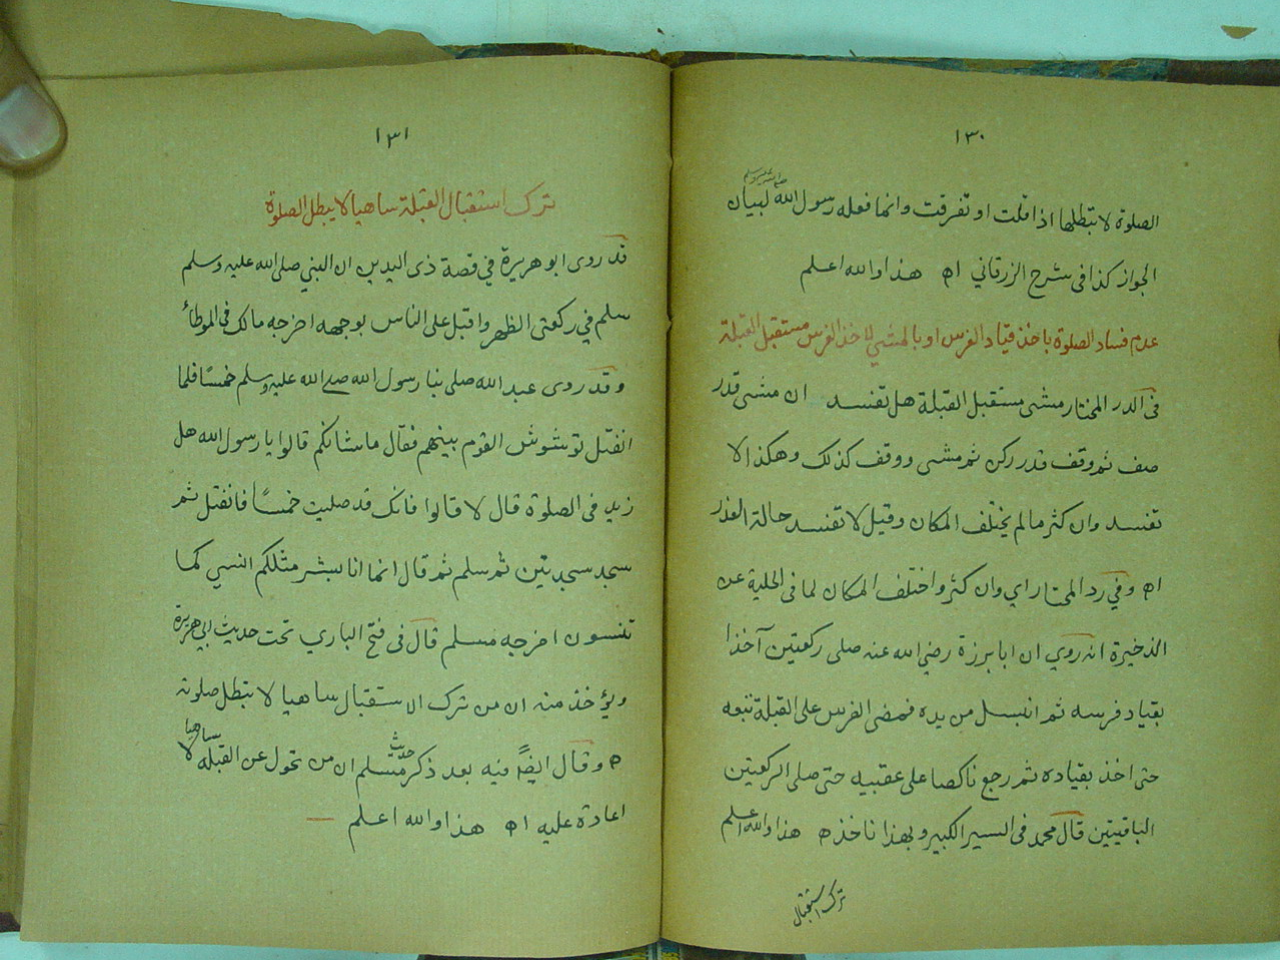 ١٣٠
الصلوة لا تبطلها اذا قلت او تفرقت وانما فعله رسول الله صلى الله عليه وسلم لبيان
الجواز كذا فى شرح الزرقاني اه هذا والله اعلم
عدم فساد الصلوة باخذ قياد الفرس او بالمشي لاخذ الفرس مستقبل القبلة
فى الدر المختار مشى مستقبل القبلة هل تفسد ان مشى قدر
صف ثم وقف قدر ركن ثم مشى ووقف كذلك وهكذا لا
تفسد وان كثر ما لم يختلف المكان وقيل لا تفسد حالة العذر
اه وفي رد المحتار اي وان كثر واختلف المكان لما فى الحلية عن
الذخيرة انه روي ان ابا برزة رضي الله عنه صلى ركعتين آخذا
بقياد فرسه ثم انسل من يده فمضى الفرس على القبلة تبعه
حتى اخذ بقياده ثم رجع ناكصا على عقبيه حتى صلى الركعتين
الباقيتين قال محمد فى السير الكبير وبهذا ناخذ ه هذا والله اعلم
ترك استقبال
١٣١
ترك استقبال القبلة ساهيا لا يبطل الصلوة
قد روى ابو هريرة في قصة ذى اليدين ان النبي صلى الله عليه وسلم
سلم في ركعتى الظهر واقبل على الناس بوجهه اخرجه مالك فى الموطأ
وقد روى عبد الله صلى بنا رسول الله صلى الله عليه وسلم خمسًا فلما
انفتل توشوش القوم بينهم فقال ما شانكم قالوا يا رسول الله هل
زيد فى الصلوة قال لا قالوا فانك قد صليت خمسًا فانفتل ثم
سجد سجدتين ثم سلم ثم قال انما انا بشر مثلكم انسي كما
تنسون اخرجه مسلم قال فى فتح الباري تحت حديث ابي هريرة
ويؤخذ منه ان من ترك الاستقبال ساهيا لا تبطل صلوته
ه وقال ايضًا فيه بعد ذكر حديث مسلم ان من تحول عن القبلة ساهيا لا
اعادة عليه اه هذا والله اعلم